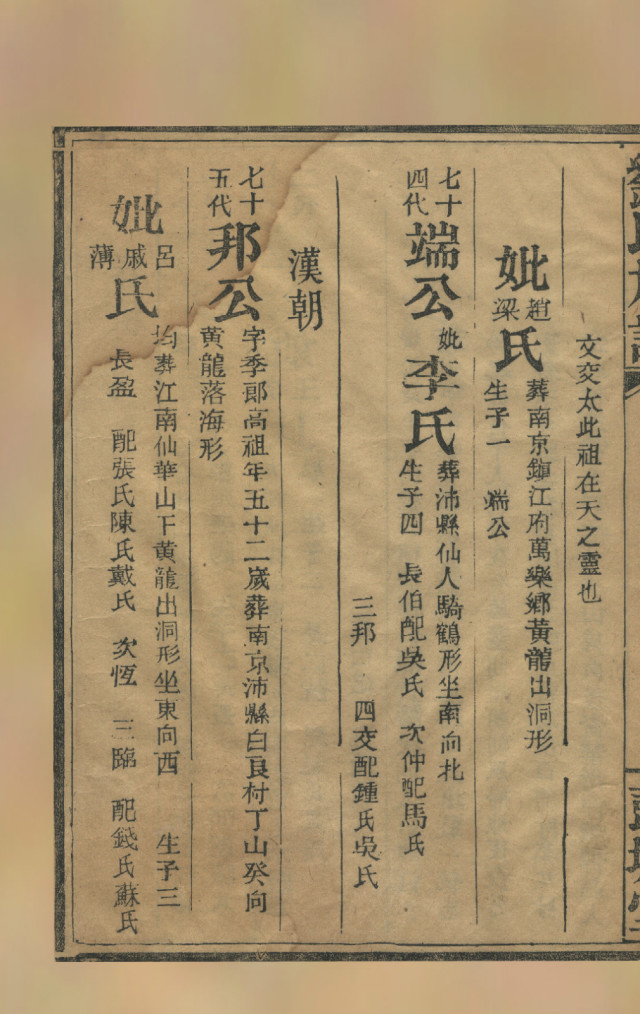 劉氏族譜
文交太此祖在天之靈也
妣
趙
梁
氏
葬南京鎮江府萬樂鄉黃龍出洞形
生子一　端公
七十
四代
端公
妣
李氏
葬沛縣仙人騎鶴形坐南向北
生子四　長伯配吳氏　次仲配馬氏
三邦　四交配鍾氏吳氏
漢朝
七十
五代
邦公
字季郎高祖年五十二歲葬南京沛縣白良村丁山癸向
黃龍落海形
妣
呂
戚
薄
氏
均葬江南仙華山下黃龍出洞形坐東向西　生子三
長盈　配張氏陳氏戴氏　次恆　三臨　配錢氏蘇氏